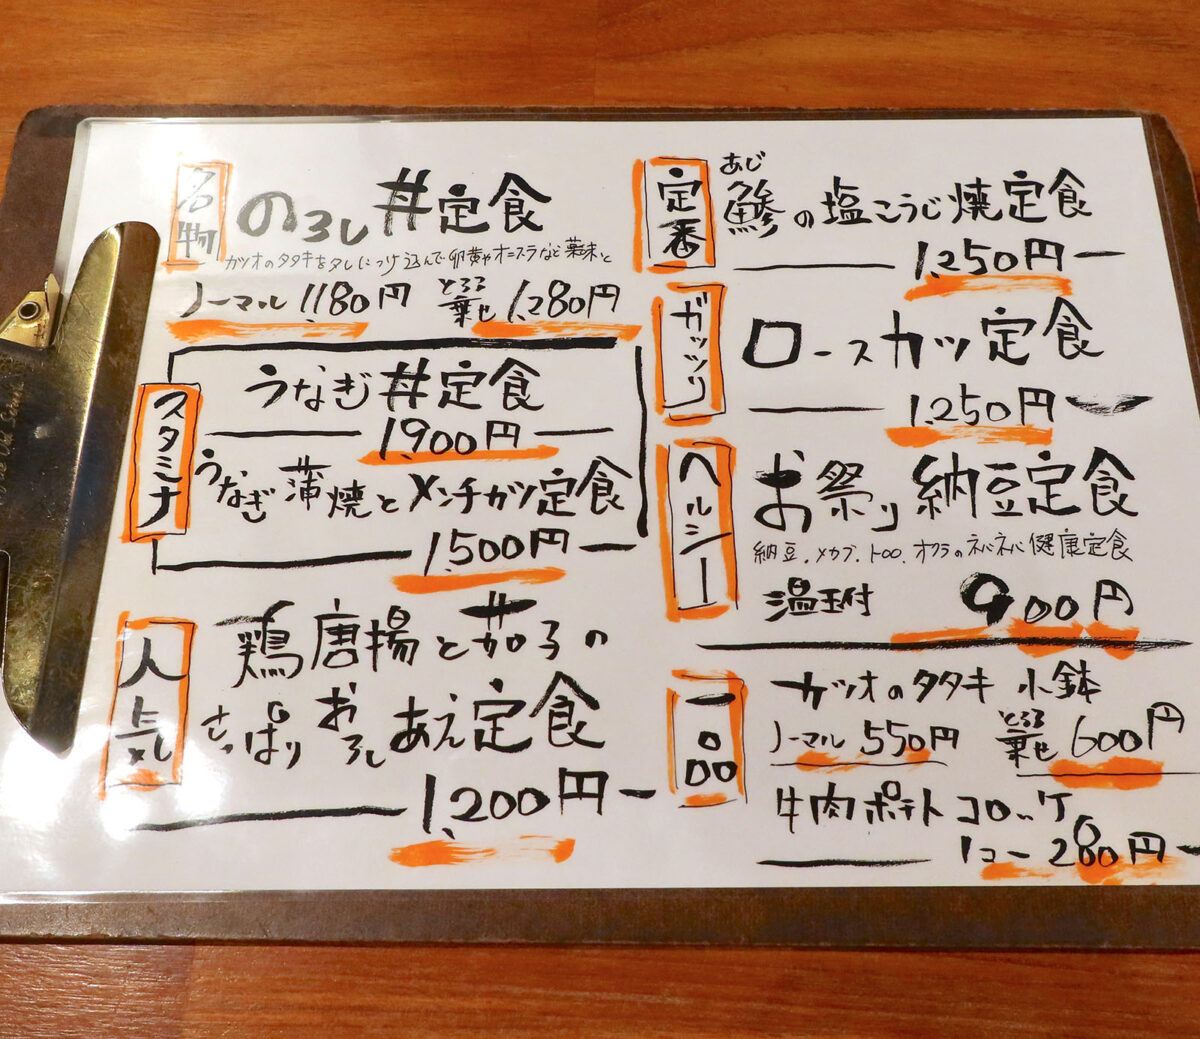 名物
のろし丼定食
カツオのタタキをタレにつけ込んで卵黄やオニスラなど薬味と
ノーマル 1180円 とろろ乗せ 1,280円
スタミナ
うなぎ丼定食
1,900円
うなぎ蒲焼とメンチカツ定食
1,500円
人気
鶏唐揚と茄子の
さっぱりおろしあえ定食
1,200円
定番
あじ
鯵の塩こうじ焼定食
1,250円
ガッツリ
ロースカツ定食
1,250円
ヘルシー
お祭り納豆定食
納豆、メカブ、トロロ、オクラのネバネバ健康定食
温玉付 900円
一品
カツオのタタキ 小鉢
ノーマル 550円 とろろ乗せ 600円
牛肉ポテトコロッケ
1コ 280円